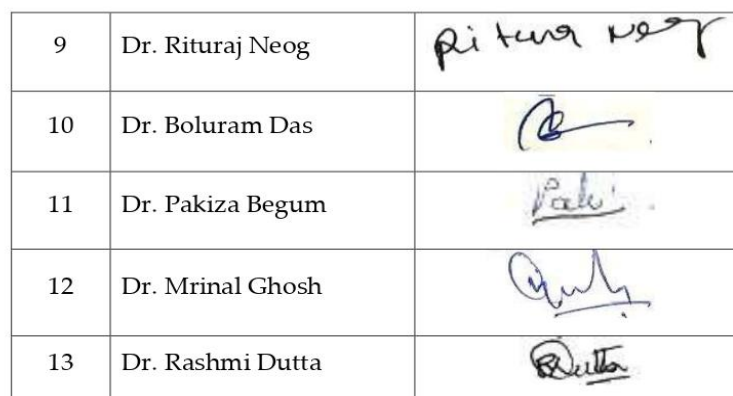 9 Dr. Rituraj Neog Rituraj Neog
10 Dr. Boluram Das
11 Dr. Pakiza Begum
12 Dr. Mrinal Ghosh
13 Dr. Rashmi Dutta RDutta